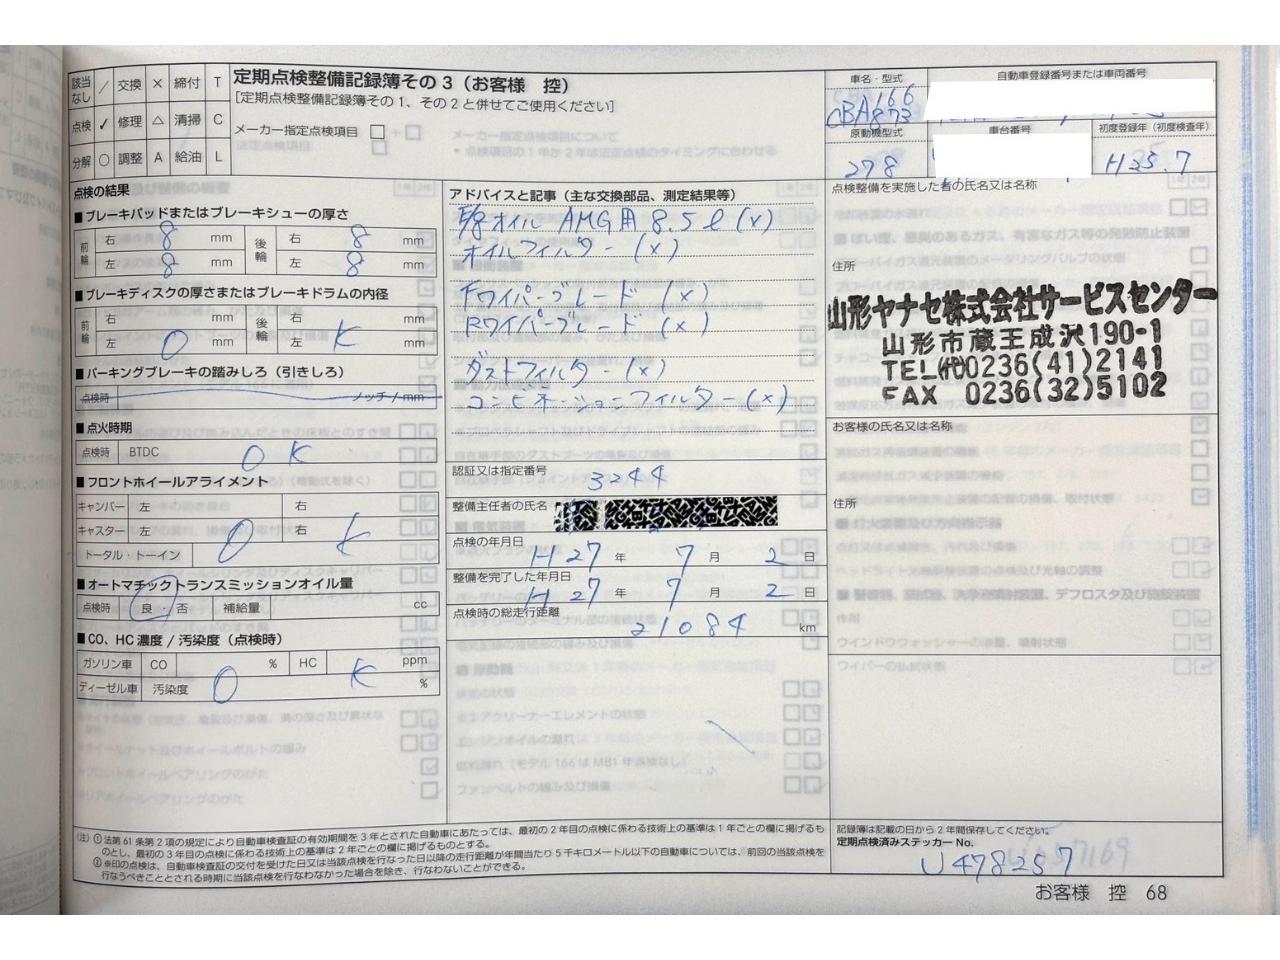 該当なし / 交換 × 締付 T
点検 ✓ 修理 △ 清掃 C
分解 ○ 調整 A 給油 L
定期点検整備記録簿その3（お客様 控）
［定期点検整備記録簿その1、その2と併せてご使用ください］
メーカー指定点検項目 □
車名・型式
166
CBA873
自動車登録番号または車両番号
原動機型式
278
車台番号
初度登録年（初度検査年）
H25.7
点検の結果
■ブレーキパッドまたはブレーキシューの厚さ
前輪 右 8 mm 後輪 右 8 mm
左 8 mm 左 8 mm
■ブレーキディスクの厚さまたはブレーキドラムの内径
前輪 右 mm 後輪 右 mm
左 O mm 左 K mm
■パーキングブレーキの踏みしろ（引きしろ）
点検時 ノッチ/mm
■点火時期
点検時 BTDC O K
■フロントホイールアライメント
キャンバー 左 右
キャスター 左 O 右 K
トータル・トーイン
■オートマチックトランスミッションオイル量
点検時 良・否 補給量 cc
■CO、HC濃度/汚染度（点検時）
ガソリン車 CO % HC ppm
ディーゼル車 汚染度 O K %
アドバイスと記事（主な交換部品、測定結果等）
E/gオイル AMG用 8.5ℓ(×)
オイルフィルター(×)
Fワイパーブレード(×)
Rワイパーブレード(×)
ダストフィルター(×)
コンビネーションフィルター(×)
認証又は指定番号
3244
整備主任者の氏名
点検の年月日
H27 年 7 月 2 日
整備を完了した年月日
H27 年 7 月 2 日
点検時の総走行距離
21084 km
点検整備を実施した者の氏名又は名称
住所
山形ヤナセ株式会社サービスセンター
山形市蔵王成沢190-1
TEL(代)0236(41)2141
FAX 0236(32)5102
お客様の氏名又は名称
住所
(注) ①法第61条第2項の規定により自動車検査証の有効期間を3年とされた自動車にあたっては、最初の2年目の点検に係わる技術上の基準は1年ごとの欄に掲げるも
のとし、最初の3年目の点検に係わる技術上の基準は2年ごとの欄に掲げるものとする。
②※印の点検は、自動車検査証の交付を受けた日又は当該点検を行なった日以降の走行距離が年間当たり5千キロメートル以下の自動車については、前回の当該点検を
行なうべきこととされる時期に当該点検を行なわなかった場合を除き、行なわないことができる。
記録簿は記載の日から2年間保存してください。
定期点検済みステッカーNo.
U478257
お客様 控 68